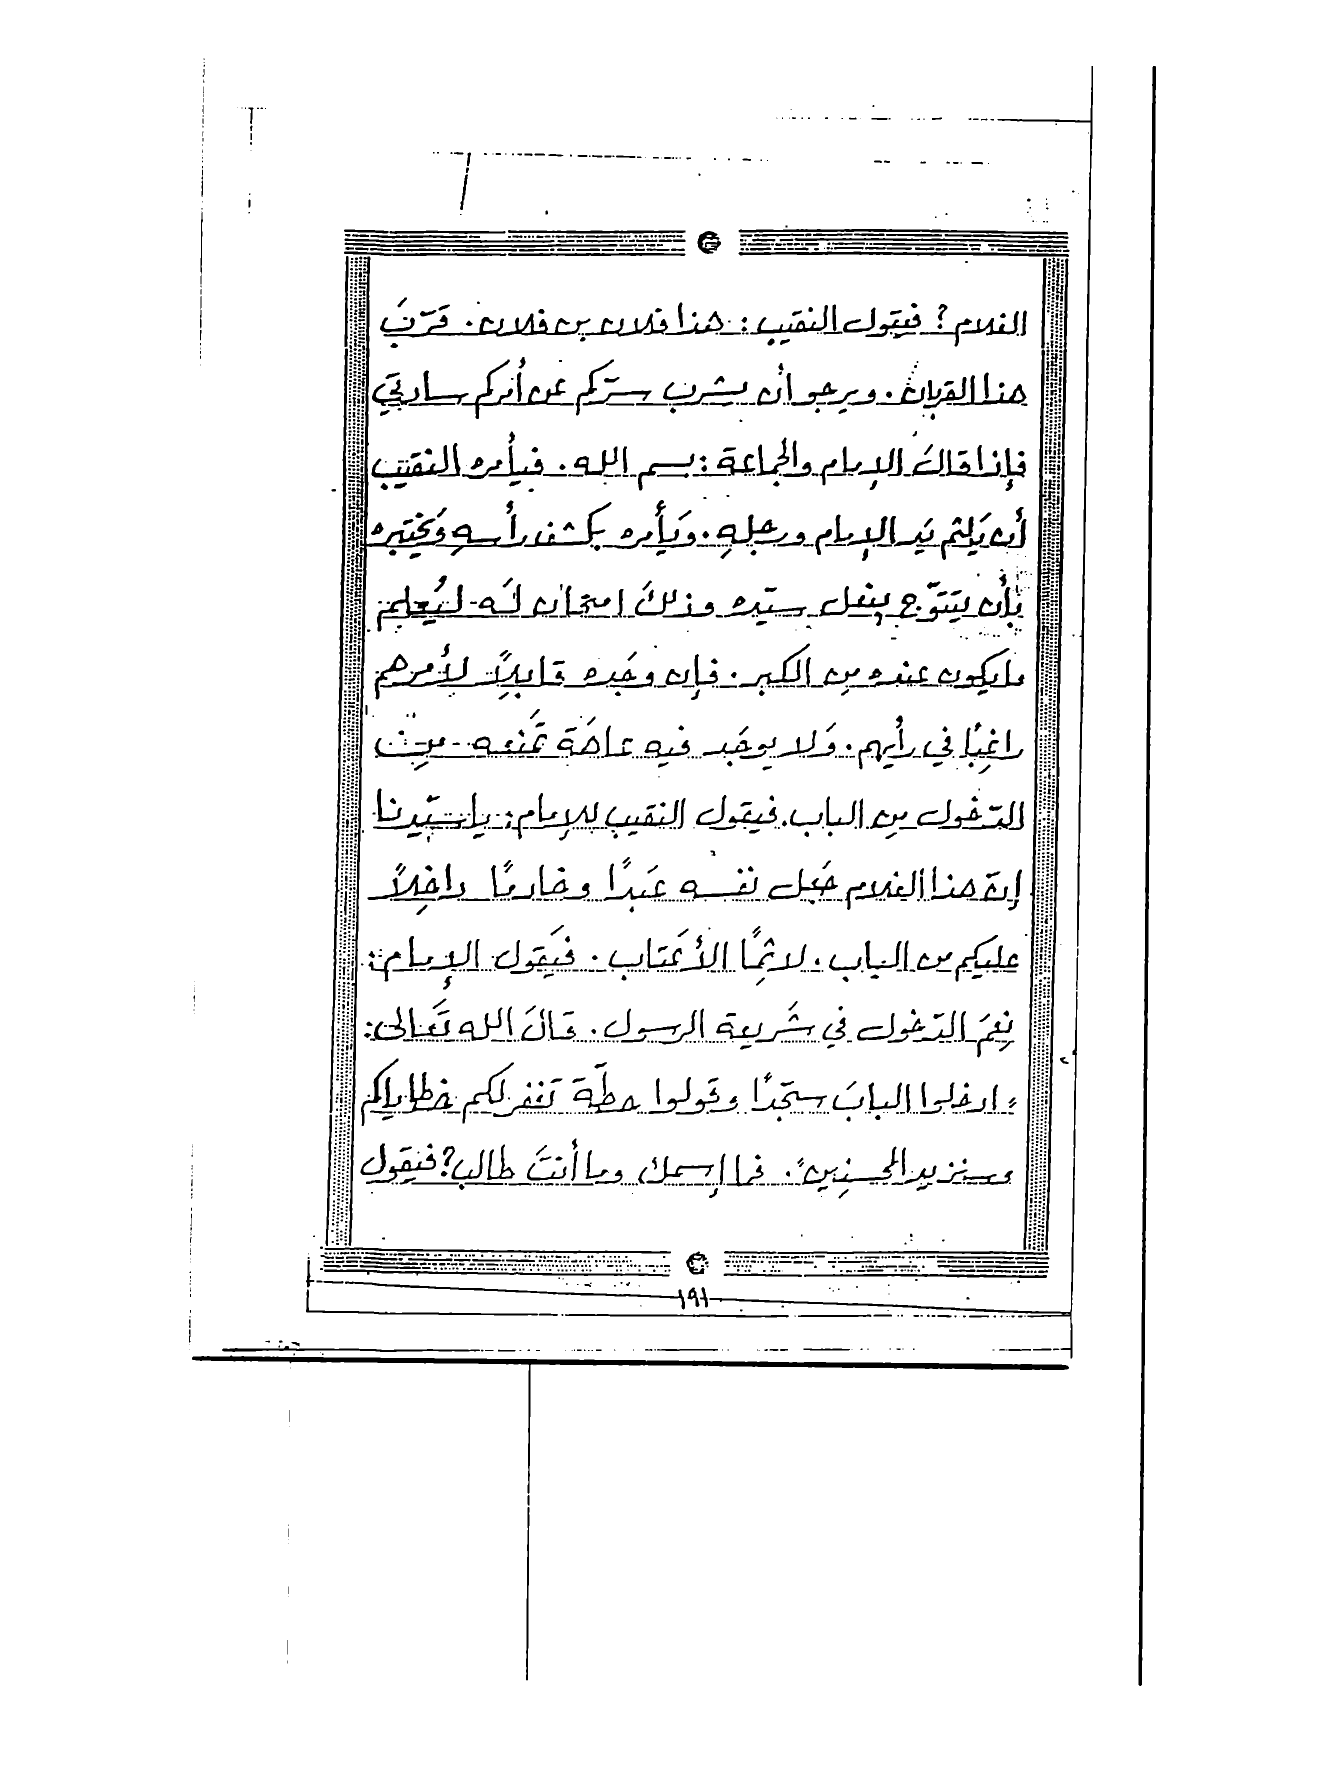 الغلام؟ فيقول النقيب: هذا فلان بن فلان. قرّبَ
هذا القربان. ويرجو أن يشرب سرّكم عن أمركم سادتي
فإذا قالَ الإمام والجماعة: بسم الله. فيأمره النقيب
أن يَلثم يَد الإمام ورجلهِ. ويَأمره بكشف رأسهِ وَيختبره
بأن يتتوّج بنعل سيّده وذلكَ امتحان لَه ليُعلم
مايكون عنده من الكبر. فإن وجَده قابلاً لأمرهم
راغِبًا في رأيهم. وَلا يوجَد فيه عاهَة تمنَعه من
الدّخول من الباب. فيقول النقيب للإمام: ياسيّدنا
إنّ هذا الغلام جَعل نفسه عَبدًا وخادمًا داخِلاً
عليكم من الباب. لاثِمًا الأعتاب. فيَقول الإمام:
نِعمَ الدّخول في شَريعة الرسول. قالَ الله تَعالى:
"ادخلوا البابَ سجّدًا وقولوا حطّة نَغفر لكم خطاياكم
وسنزيد المحسنِين". فما إسمك وما أنتَ طالب؟ فيقول
١٩١